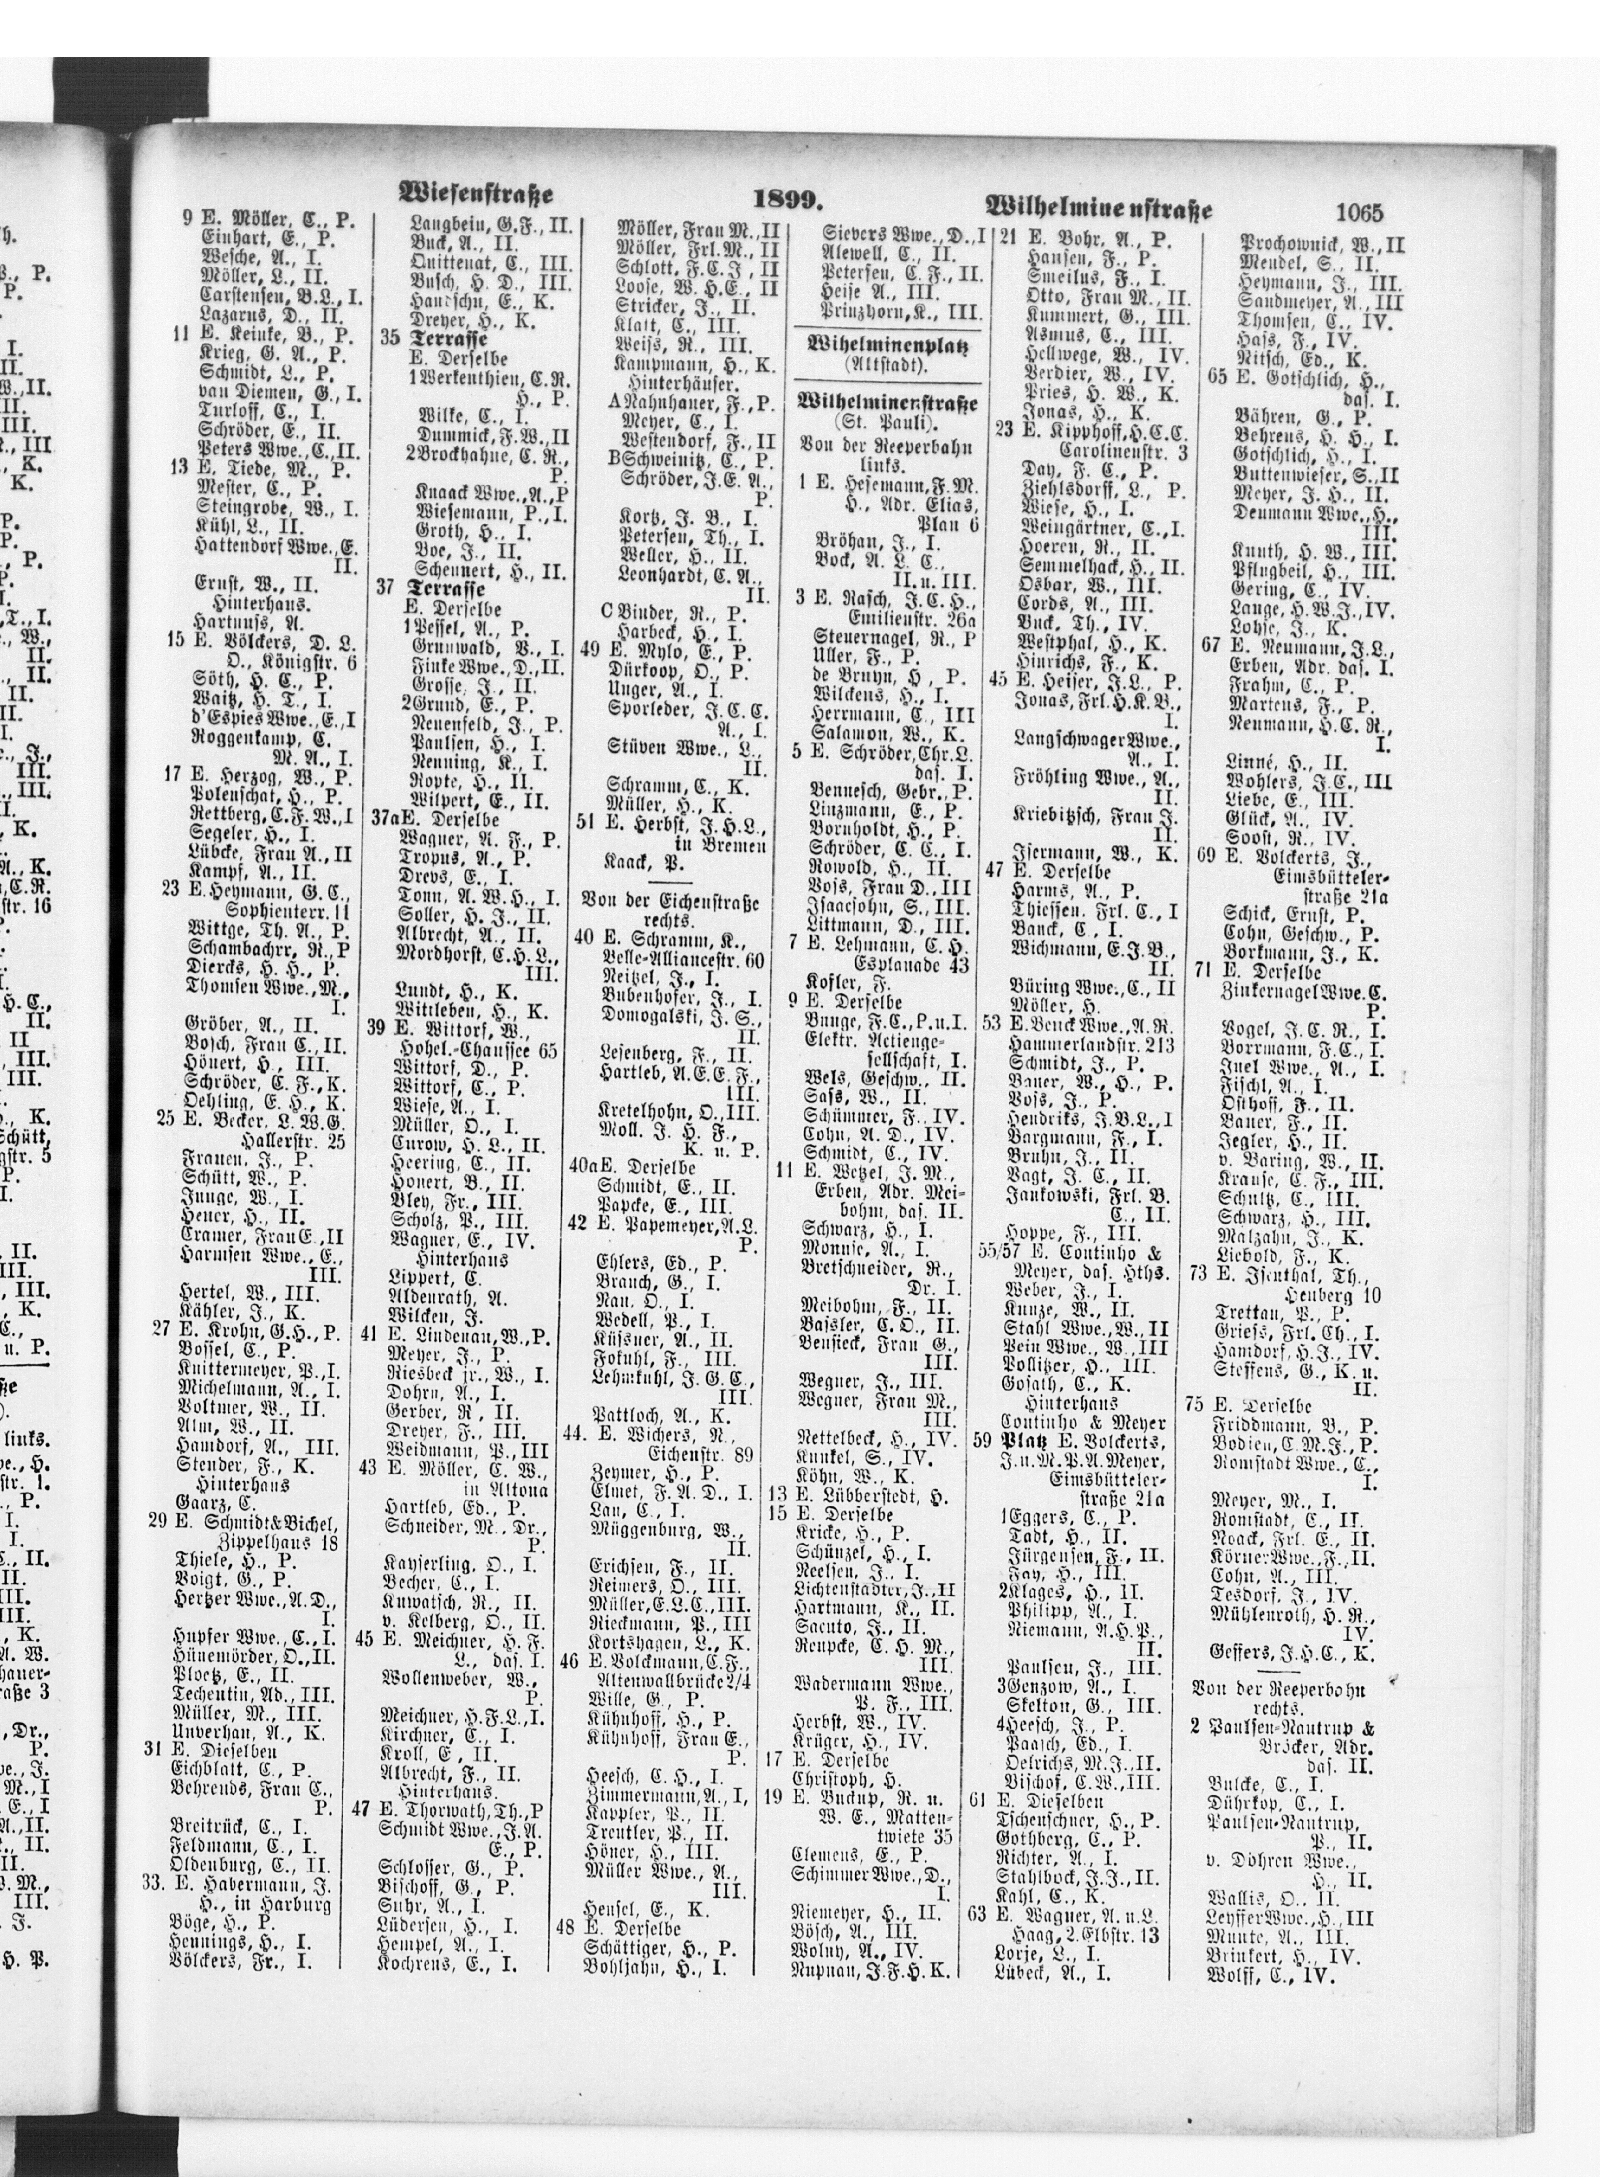 Wiesenstraße
1899.
Wilhelminenstraße
1065
9 E. Möller, C., P.
Einhart, E., P.
Wesche, A., I.
Möller, L., II.
Carstensen, B.L., I.
Lazarus, D., II.
11 E. Reinke, B., P.
Krieg, G. A., P.
Schmidt, L., P.
van Diemen, G., I.
Turloff, C., I.
Schröder, E., II.
Peters Wwe., C., II.
13 E. Tiede, M., P.
Mester, C., P.
Steingrobe, W., I.
Kühl, L., II.
Hattendorf Wwe., E.
II.
Ernst, W., II.
Hinterhaus.
Hartnuss, A.
15 E. Völckers, D. L.
O., Königstr. 6
Söth, H. C., P.
Waitz, H. T., I.
d'Espies Wwe., E., I
Roggenkamp, C.
M. A., I.
17 E. Herzog, W., P.
Polenschat, H., P.
Rettberg, C.F.W., I
Segeler, H., I.
Lübcke, Frau A., II
Kampf, A., II.
23 E. Heymann, G. C.,
Sophienterr. 11
Wittge, Th. A., P.
Schambachrr, R., P
Diercks, H. H., P.
Thomsen Wwe., M.,
I.
Gröber, A., II.
Bosch, Frau C., II.
Hönert, H., III.
Schröder, C. F., K.
Oehling, E. H., K.
25 E. Becker, L. W. G.
Hallerstr. 25
Frauen, J., P.
Schütt, W., P.
Junge, W., I.
Heuer, H., II.
Cramer, Frau E., II
Harmsen Wwe., E.,
III.
Hertel, W., III.
Kähler, J., K.
27 E. Krohn, G.H., P.
Bossel, C., P.
Knittermeyer, P., I.
Michelmann, A., I.
Voltmer, W., II.
Alm, W., II.
Hamdorf, A., III.
Stender, F., K.
Hinterhaus
Gaarz, C.
29 E. Schmidt & Bichel,
Zippelhaus 18
Thiele, H., P.
Voigt, G., P.
Hertzer Wwe., A. D.,
I.
Hupfer Wwe., C., I.
Hünemörder, O., II.
Ploetz, E., II.
Techentin, Ad., III.
Müller, M., III.
Unverhau, A., K.
31 E. Dieselben
Eichblatt, C., P.
Behrends, Frau C.,
P.
Breitrück, C., I.
Feldmann, C., I.
Oldenburg, C., II.
33. E. Habermann, J.
H., in Harburg
Böge, H., P.
Hennings, H., I.
Völckers, Fr., I.
Langbein, G.F., II.
Buck, A., II.
Quittenat, C., III.
Busch, H. D., III.
Handschu, E., K.
Dreyer, H., K.
35 Terrasse
E. Derselbe
1 Werkenthien, C. R.
H., P.
Wilke, C., I.
Dummick, F. W., II
2 Brockhahne, C. R.,
P.
Knaack Wwe., A., P
Wiesemann, P., I.
Groth, H., I.
Boe, J., II.
Schennert, H., II.
37 Terrasse
E. Derselbe
1 Pessel, A., P.
Grunwald, V., I.
Finke Wwe., D., II.
Grosse, J., II.
2 Grund, E., P.
Neuenfeld, J., P.
Paulsen, H., I.
Nenning, K., I.
Ropte, H., II.
Wilpert, E., II.
37a E. Derselbe
Wagner, A. F., P.
Tropus, A., P.
Drevs, E., I.
Tonn, A. W. H., I.
Soller, H. J., II.
Albrecht, A., II.
Mordhorst, C.H.L.,
III.
Lundt, H., K.
Wittleben, H., K.
39 E. Wittorf, W.,
Hohel.-Chaussee 65
Wittorf, D., P.
Wittorf, C., P.
Wiese, A., I.
Müller, O., I.
Curow, H. L., II.
Heering, C., II.
Honert, B., II.
Bley, Fr., III.
Scholz, P., III.
Wagner, E., IV.
Hinterhaus
Lippert, C.
Aldenrath, A.
Wilcken, J.
41 E. Lindenau, W., P.
Meyer, J., P.
Riesbeck jr., W., I.
Dohrn, A., I.
Gerber, R., II.
Dreyer, F., III.
Weidmann, P., III
43 E. Möller, C. W.,
in Altona
Hartleb, Ed., P.
Schneider, M., Dr.,
P.
Kayserling, O., I.
Becher, C., I.
Kuwatsch, R., II.
v. Kelberg, O., II.
45 E. Meichner, H. F.
L., das. I.
Wollenweber, W.,
P.
Meichner, H.F.L., I.
Kirchner, C., I.
Kroll, E., II.
Albrecht, F., II.
Hinterhaus.
47 E. Thorwath, Th., P
Schmidt Wwe., J. A.
E., P.
Schlosser, G., P.
Bischoff, G., P.
Suhr, A., I.
Lüdersen, H., I.
Hempel, A., I.
Kochrens, E., I.
Möller, Frau M., II
Möller, Frl. M., II
Schlott, F. C. J., II
Loose, W. H. E., II
Stricker, J., II.
Klatt, C., III.
Weiss, R., III.
Kampmann, H., K.
Hinterhäuser.
A Nahnhauer, F., P.
Meyer, C., I.
Westendorf, F., II
B Schweinitz, C., P.
Schröder, J.E. A.,
P.
Kortz, J. B., I.
Petersen, Th., I.
Weller, H., II.
Leonhardt, C. A.,
II.
C Binder, R., P.
Harbeck, H., I.
49 E. Mylo, E., P.
Dürkoop, O., P.
Unger, A., I.
Sporleder, J. C. C.
A., I.
Stüven Wwe., L.,
II.
Schramm, C., K.
Müller, H., K.
51 E. Herbst, J.H.L.,
in Bremen
Kaack, P.
Von der Eichenstraße
rechts.
40 E. Schramm, K.,
Belle-Alliancestr. 60
Neitzel, J., I.
Bubenhofer, J., I.
Domogalski, J. S.,
II.
Lesenberg, F., II.
Hartleb, A. E. E. F.,
III.
Kretelhohn, O., III.
Moll, J. H. F.,
K. u. P.
40a E. Derselbe
Schmidt, E., II.
Papcke, E., III.
42 E. Papemeyer, A.L.
P.
Ehlers, Ed., P.
Brauch, G., I.
Nau, O., I.
Wedell, P., I.
Küssner, A., II.
Fokuhl, F., III.
Lehmkuhl, J. G. C.,
III.
Pattloch, A., K.
44. E. Wichers, N.,
Eichenstr. 89
Zeymer, H., P.
Elmet, F. A. D., I.
Lau, C., I.
Müggenburg, W.,
II.
Erichsen, F., II.
Reimers, O., III.
Müller, E.L.C., III.
Rieckmann, P., III
Kortshagen, L., K.
46 E. Volckmann, C.F.,
Altenwallbrücke 2/4
Wille, G., P.
Kühnhoff, H., P.
Kühnhoff, Frau E.,
P.
Heesch, C. H., I.
Zimmermann, A., I,
Kappler, P., II.
Treutler, P., II.
Höner, H., III.
Müller Wwe., A.,
III.
Hensel, E., K.
48 E. Derselbe
Schättiger, H., P.
Bohljahn, H., I.
Sievers Wwe., D., I
Alewell, C., II.
Petersen, C. F., II.
Heise A., III.
Prinzhorn, K., III.
Wihelminenplatz
(Altstadt).
Wilhelminenstraße
(St. Pauli).
Von der Reeperbahn
links.
1 E. Hesemann, F. M.
H., Adr. Elias,
Plan 6
Bröhan, J., I.
Bock, A. L. C.,
II. u. III.
3 E. Rasch, J. C. H.,
Emilienstr. 26a
Steuernagel, R., P
Uller, F., P.
de Bruyn, H., P.
Wilckens, H., I.
Herrmann, C., III
Salamon, W., K.
5 E. Schröder, Chr. L.
das. I.
Bennesch, Gebr., P.
Linzmann, E., P.
Bornholdt, H., P.
Schröder, C. C., I.
Rowold, H., II.
Voss, Frau D., III
Isaacsohn, S., III.
Littmann, D., III.
7 E. Lehmann, C. H.
Esplanade 43
Kofler, F.
9 E. Derselbe
Bunge, F.C., P. u. I.
Elektr. Actienge-
sellschaft, I.
Wels, Geschw., II.
Sass, W., II.
Schümmer, F., IV.
Cohn, A. D., IV.
Schmidt, C., IV.
11 E. Wetzel, J. M.,
Erben, Adr. Mei-
bohm, das. II.
Schwarz, H., I.
Monnse, A., I.
Bretschneider, R.,
Dr. I.
Meibohm, F., II.
Bassler, C. O., II.
Benseck, Frau G.,
III.
Wegner, J., III.
Wegner, Frau M.,
III.
Nettelbeck, H., IV.
Kunkel, S., IV.
Köhn, W., K.
13 E. Lübberstedt, H.
15 E. Derselbe
Kricke, H., P.
Schünzel, H., I.
Neelsen, J., I.
Lichtenstädter, J., II
Hartmann, K., II.
Sacuto, J., II.
Reupcke, C. H. M.,
III.
Wadermann Wwe.,
P. F., III.
Herbst, W., IV.
Krüger, H., IV.
17 E. Derselbe
Christoph, H.
19 E. Buckup, R. u.
W. E., Matten-
twiete 35
Clemens, E., P.
Schimmer Wwe., D.,
I.
Niemeyer, H., II.
Bösch, A., III.
Wolny, A., IV.
Rupnau, J.F.H. K.
21 E. Bohr, A., P.
Hansen, F., P.
Smeilus, F., I.
Otto, Frau M., II.
Kummert, G., III.
Asmus, C., III.
Hellwege, W., IV.
Verdier, W., IV.
Pries, H. W., K.
Jonas, H., K.
23 E. Kipphoff, H. C. C.
Carolinenstr. 3
Day, F. C., P.
Ziehlsdorff, L., P.
Wiese, H., I.
Weingärtner, C., I.
Hoeren, R., II.
Semmelhack, H., II.
Osbar, W., III.
Cords, A., III.
Buck, Th., IV.
Westphal, H., K.
Hinrichs, F., K.
45 E. Heiser, J. L., P.
Jonas, Frl. H. K. B.,
I.
Langschwager Wwe.,
A., I.
Fröhling Wwe., A.,
II.
Kriebitzsch, Frau J.
II.
Isermann, W., K.
47 E. Derselbe
Harms, A., P.
Thiessen. Frl. C., I
Banck, C., I.
Wichmann, E. J. B.,
II.
Büring Wwe., C., II
Möller, H.
53 E. Benck Wwe., A. R.
Hammerlandstr. 213
Schmidt, J., P.
Bauer, W., H., P.
Voss, J., P.
Hendriks, J. B. L., I
Bargmann, F., I.
Bruhn, J., II.
Vagt, J. C., II.
Jankowski, Frl. B.
C., II.
Hoppe, F., III.
55/57 E. Coutinho &
Meyer, das. Hths.
Weber, J., I.
Kunze, W., II.
Stahl Wwe., W., II
Pein Wwe., W., III
Pollitzer, H., III.
Gosath, C., K.
Hinterhaus
Coutinho & Meyer
59 Platz E. Volckerts,
J. u. M. P. A. Meyer,
Eimsbütteler-
straße 21a
1 Eggers, C., P.
Tadt, H., II.
Jürgensen, F., II.
Fay, H., III.
2 Klages, H., II.
Philipp, A., I.
Niemann, A. H. P.,
II.
Paulsen, J., III.
3 Genzow, A., I.
Skelton, G., III.
4 Heesch, J., P.
Paasch, Ed., I.
Oelrichs, M. J., II.
Bischof, C. W., III.
61 E. Dieselben
Tschenschner, H., P.
Gothberg, C., P.
Richter, A., I.
Stahlbock, J. J., II.
Kahl, C., K.
63 E. Wagner, A. u. L.
Haag, 2. Elbstr. 13
Lorje, L., I.
Lübeck, A., I.
Prochownick, W., II
Mendel, S., II.
Heymann, J., III.
Sandmeyer, A., III
Thomsen, C., IV.
Hass, F., IV.
Nitsch, Ed., K.
65 E. Gotschlich, H.,
das. I.
Bähren, G., P.
Behrens, H. H., I.
Gotschlich, H., I.
Buttenwieser, S., II
Meyer, J. H., II.
Deumann Wwe., H.,
III.
Knuth, H. W., III.
Pflugbeil, H., III.
Gering, C., IV.
Lange, H. W. J., IV.
Lohse, J., K.
67 E. Neumann, J. L.,
Erben, Adr. das. I.
Frahm, C., P.
Martens, F., P.
Neumann, H. C. R.,
I.
Linné, H., II.
Wohlers, J. C., III
Liebe, E., III.
Glück, A., IV.
Soost, R., IV.
69 E. Volckerts, J.,
Eimsbütteler-
straße 21a
Schick, Ernst, P.
Cohn, Geschw., P.
Borkmann, J., K.
71 E. Derselbe
Zinkernagel Wwe. C.
P.
Vogel, J. C. R., I.
Borrmann, F. C., I.
Juel Wwe., A., I.
Fischl, A., I.
Osthoff, F., II.
Bauer, F., II.
Jegler, H., II.
v. Baring, W., II.
Krause, C. F., III.
Schultz, C., III.
Schwarz, H., III.
Malzahn, J., K.
Liebold, F., K.
73 E. Isenthal, Th.,
Heuberg 10
Trettau, P., P.
Griess, Frl. Ch., I.
Hamdorf, H. J., IV.
Steffens, G., K. u.
II.
75 E. Derselbe
Friddmann, B., P.
Bodien, C. M. J., P.
Romstadt Wwe., C.,
I.
Meyer, M., I.
Romstadt, C., II.
Noack, Frl. E., II.
Körner Wwe., F., II.
Cohn, A., III.
Tesdorf, J., IV.
Mühlenroth, H. R.,
IV.
Geffers, J. H. C., K.
Von der Reeperbahn
rechts.
2 Paulsen-Nautrup &
Bröcker, Adr.
das. II.
Bulcke, C., I.
Dührkop, C., I.
Paulsen-Nautrup,
P., II.
v. Döhren Wwe.,
H., II.
Wallis, O., II.
Leysser Wwe., H., III
Munte, A., III.
Brinkert, H., IV.
Wolff, C., IV.